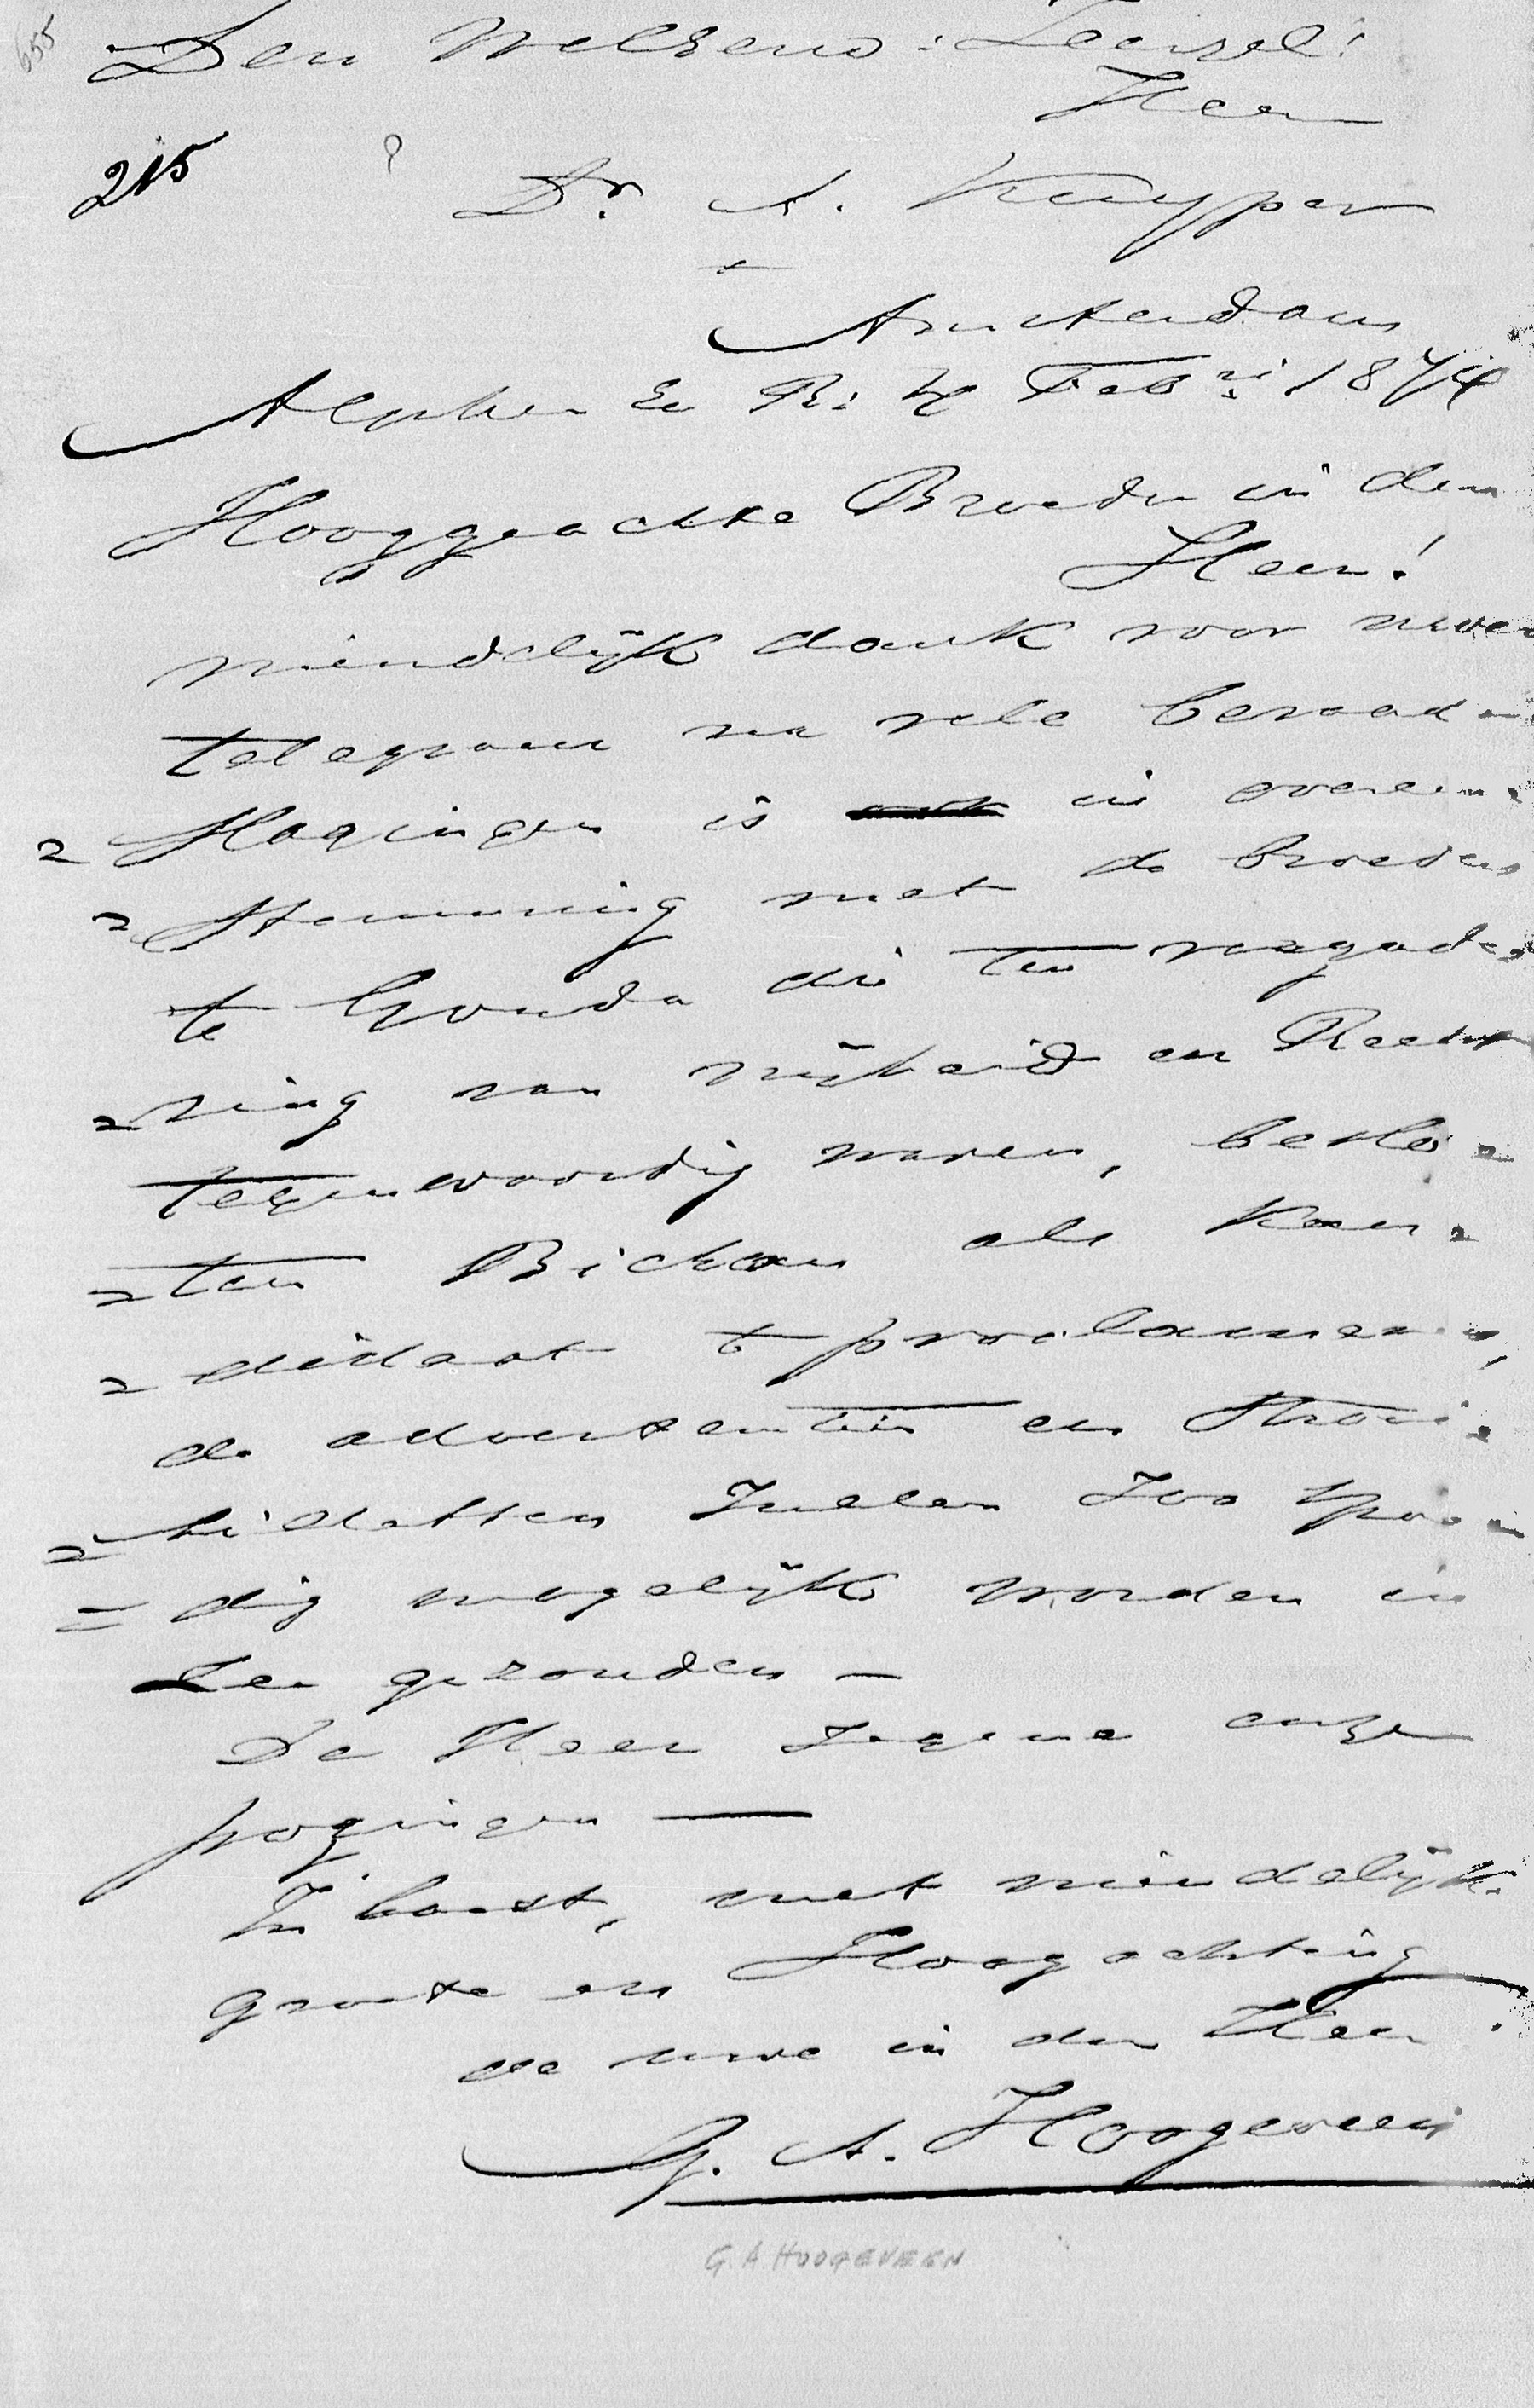 655
Den WelEerw: Zeergel:
Heer
215
Dr. A. Kuyper
Amsterdam
Alphen a/ R: 4 Feb ri 1874
Hooggeachte Broeder in den
Heer!
vriendelijk dank voor uwen
telegram na vele beraad-
=slagingen is in overeen=
=stemming met de broeders
te Gouda die ter vergade
=ring van vrijheid en Recht
tegenwoordig waren, beslo=
=ten Bichon als kan=
=didaat te proclameren,
de advertentien en Strooi=
=billetten Zullen Zoo spoe=
=dig mogelijk worden in
Zee gezonden —
De Heer Zegene onze
pogingen —
In haast, met vriendelijke
groete en Hoogachting
de uwe in den Heer.
G. A. Hoogeveen
G. A. HOOGEVEEN